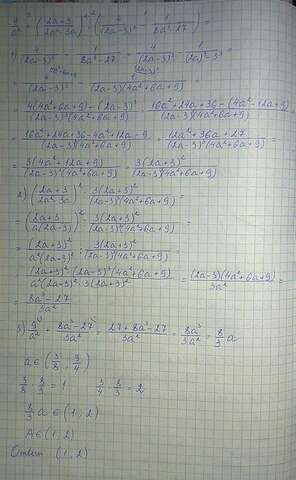 9/a² + (2a+3 / 2a²-3a)² : (4/(2a-3)² - 1/8a³-27) =
1) 4/(2a-3)² - 1/8a³-27 = 4/(2a-3)² - 1/(2a)³-3³ =
= 4/(2a-3)² - 1/(2a-3)(4a²+6a+9) =
= 4(4a²+6a+9)-(2a-3)²/(2a-3)²(4a²+6a+9) = 16a²+24a+36-(4a²-12a+9)/(2a-3)²(4a²+6a+9) =
= 16a²+24a+36-4a²+12a-9/(2a-3)²(4a²+6a+9) = 12a²+36a+27/(2a-3)²(4a²+6a+9) =
= 3(4a²+12a+9)/(2a-3)²(4a²+6a+9) = 3(2a+3)²/(2a-3)²(4a²+6a+9)
2) (2a+3/2a²-3a)² : 3(2a+3)²/(2a-3)²(4a²+6a+9) =
= (2a+3/a(2a-3))² : 3(2a+3)²/(2a-3)²(4a²+6a+9) =
= (2a+3)²/a²(2a-3)² : 3(2a+3)²/(2a-3)²(4a²+6a+9) =
= (2a+3)²(2a-3)²(4a²+6a+9)/a²(2a-3)²·3(2a+3)² = (2a-3)(4a²+6a+9)/3a² =
= 8a³-27/3a²
3) 9/a² + 8a³-27/3a² = 27+8a³-27/3a² = 8a³/3a² = 8/3 a
a∈(3/8, 3/4)
3/8 · 8/3 = 1 3/4 · 8/3 = 2
8/3 a ∈ (1, 2)
A∈(1, 2)
Ответ (1, 2)